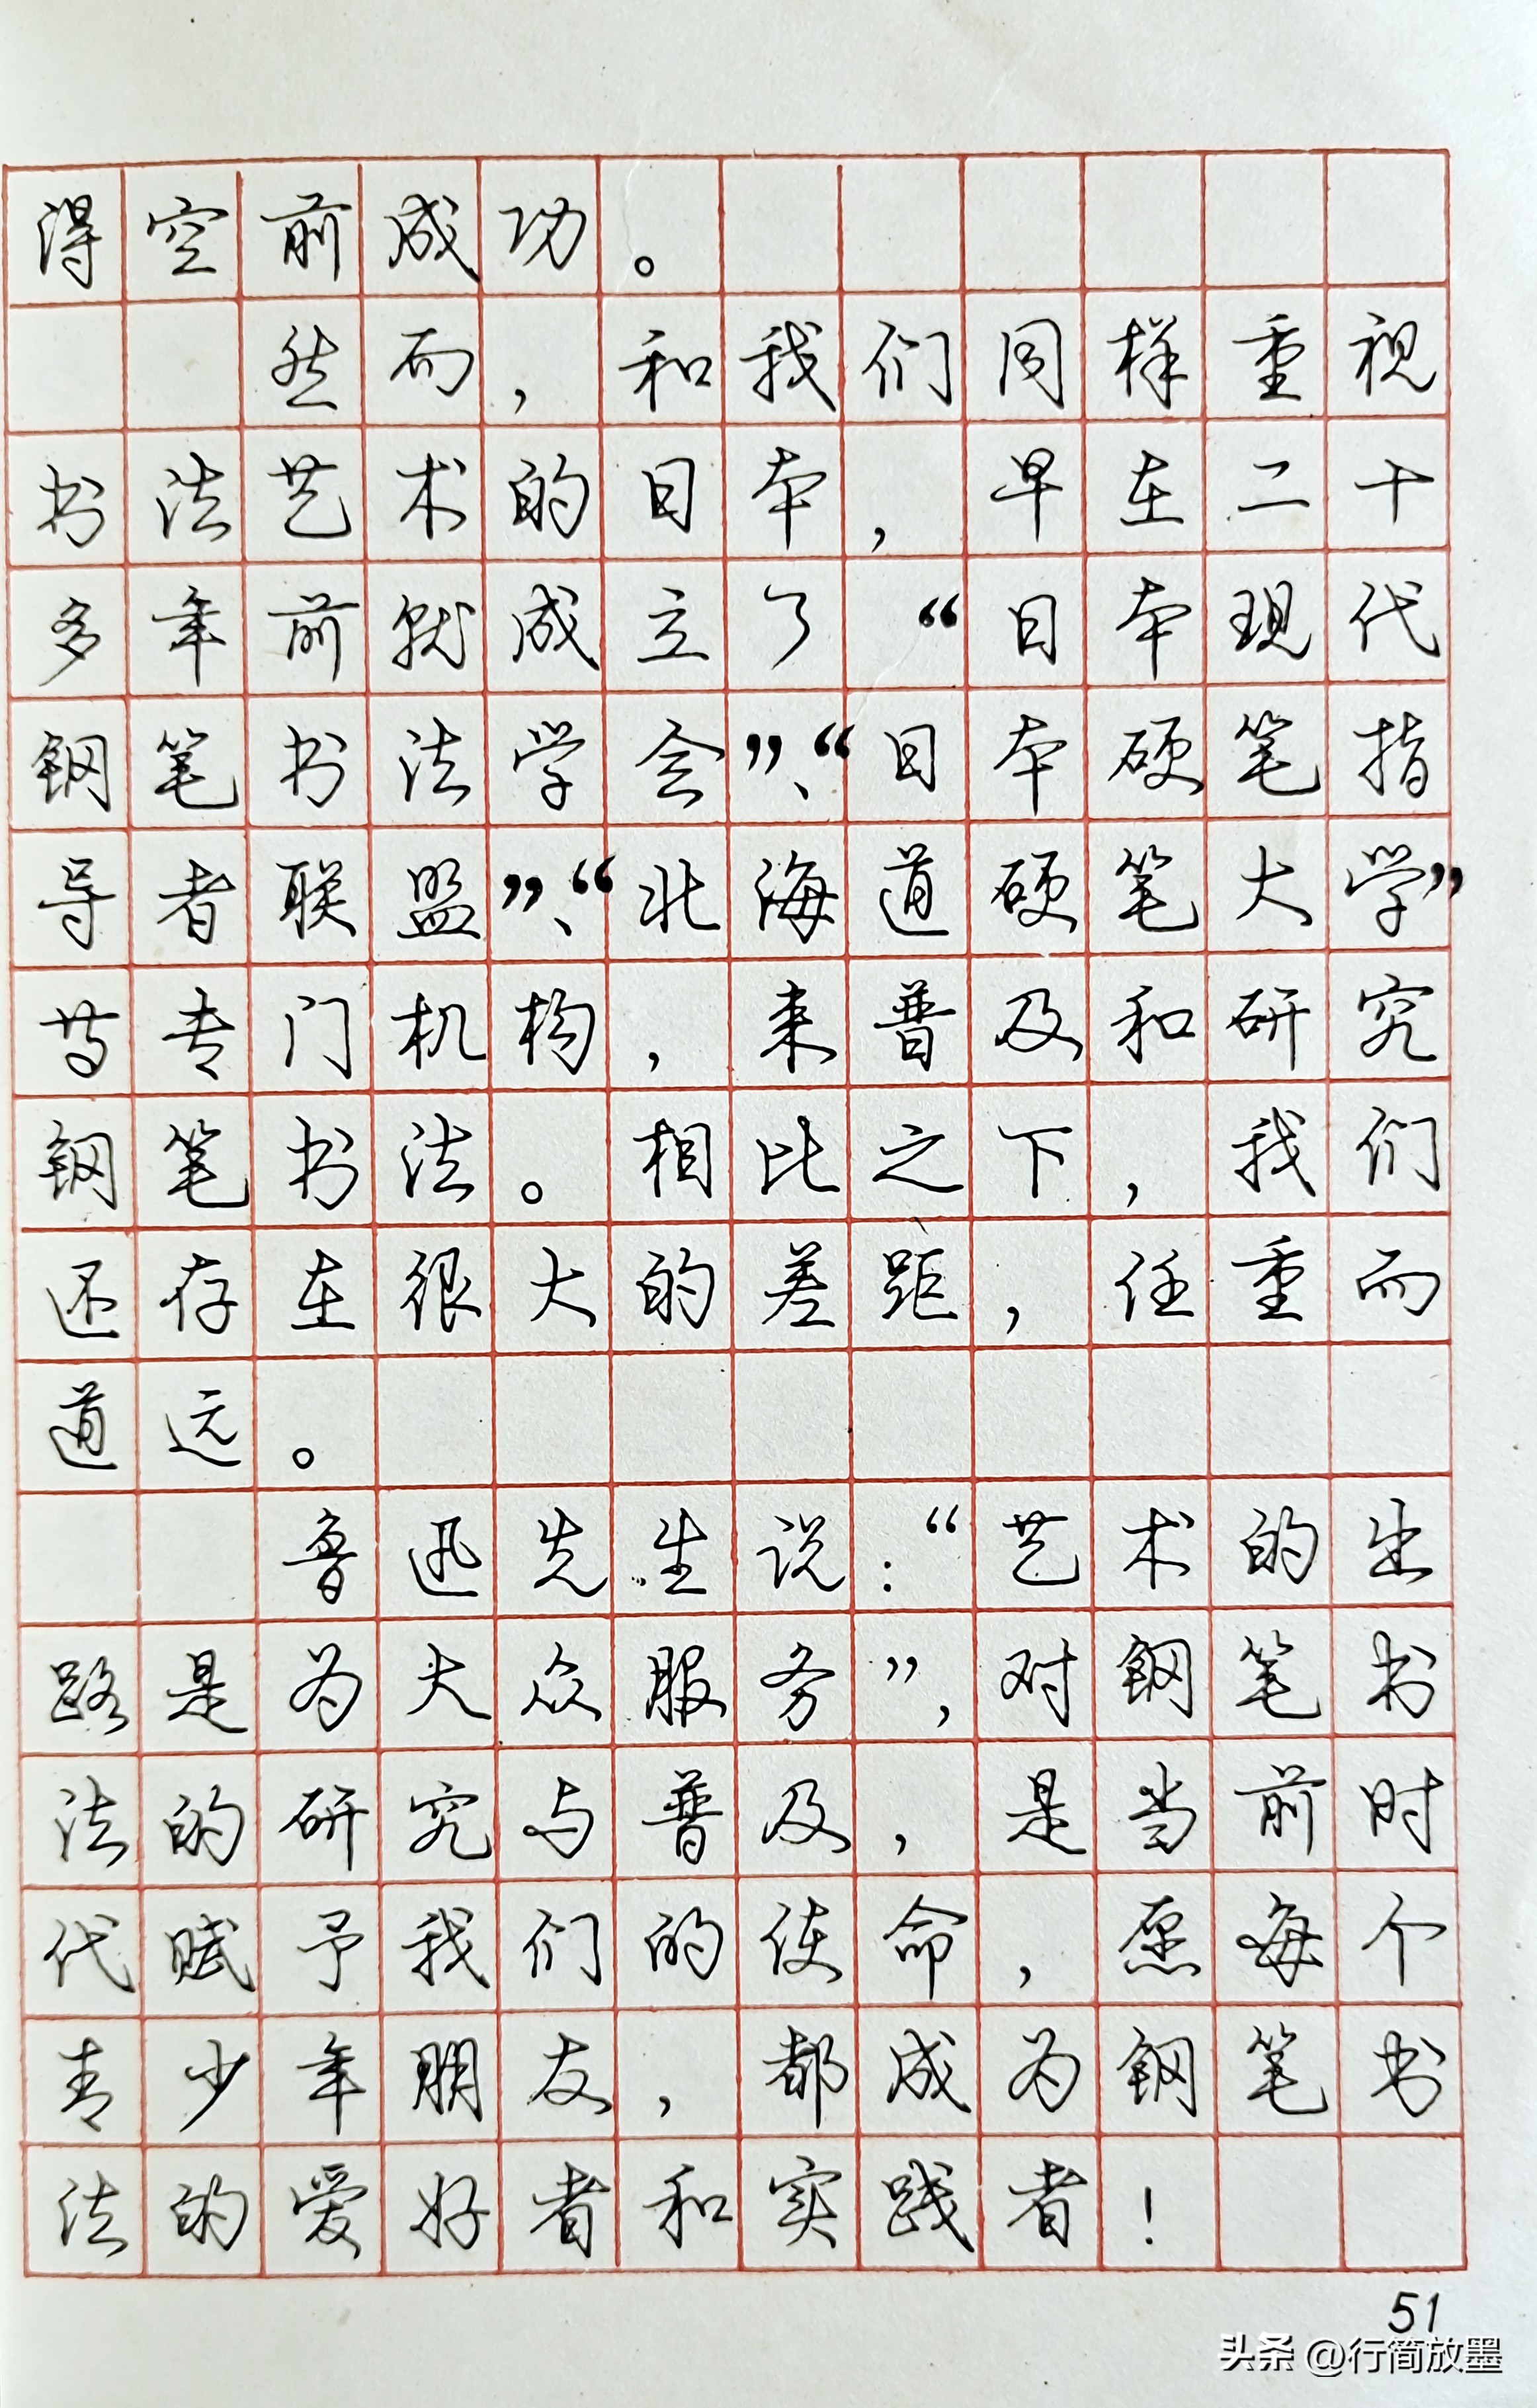 得空前成功。
然而，和我们同样重视
书法艺术的日本，早在二十
多年前就成立了“日本现代
钢笔书法学会”、“日本硬笔指
导者联盟”、“北海道硬笔大学”
等专门机构，来普及和研究
钢笔书法。相比之下，我们
还存在很大的差距，任重而
道远。
鲁迅先生说：“艺术的出
路是为大众服务”，对钢笔书
法的研究与普及，是当前时
代赋予我们的使命，愿每个
青少年朋友，都成为钢笔书
法的爱好者和实践者！
51
头条 @行简放墨